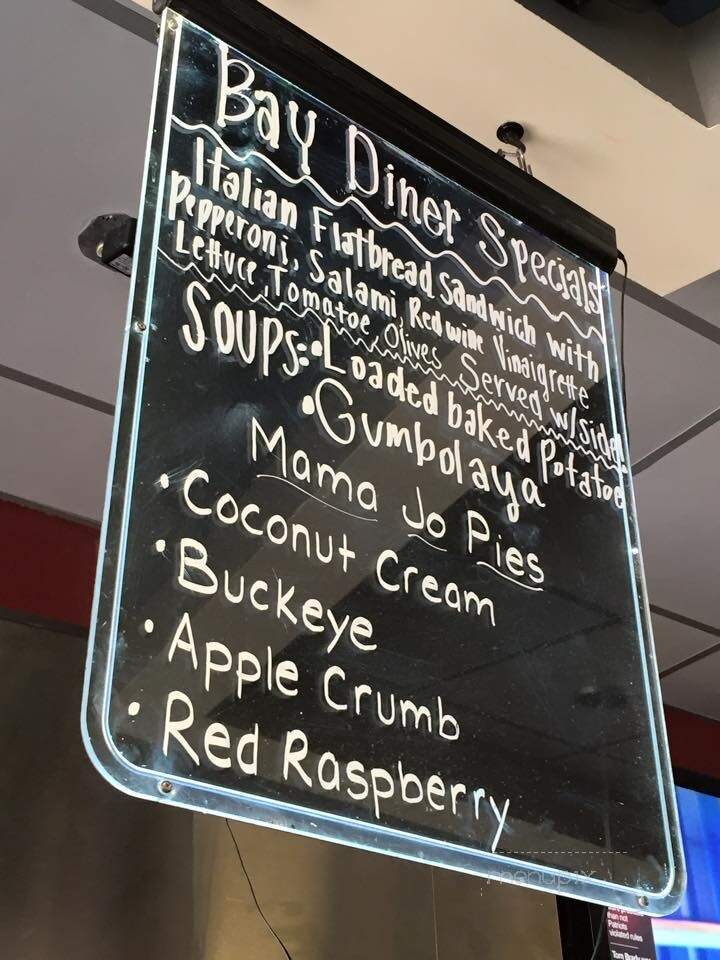 Bay Diner Specials
Italian Flatbread Sandwich with
Pepperoni, Salami, Red wine Vinaigrette
Lettuce, Tomatoe, Olives Served w/side.
SOUPS: •Loaded baked Potatoe
•Gumbolaya
Mama Jo Pies
•Coconut Cream
•Buckeye
•Apple Crumb
•Red Raspberry
menupix
than not
Patriots
violated rules